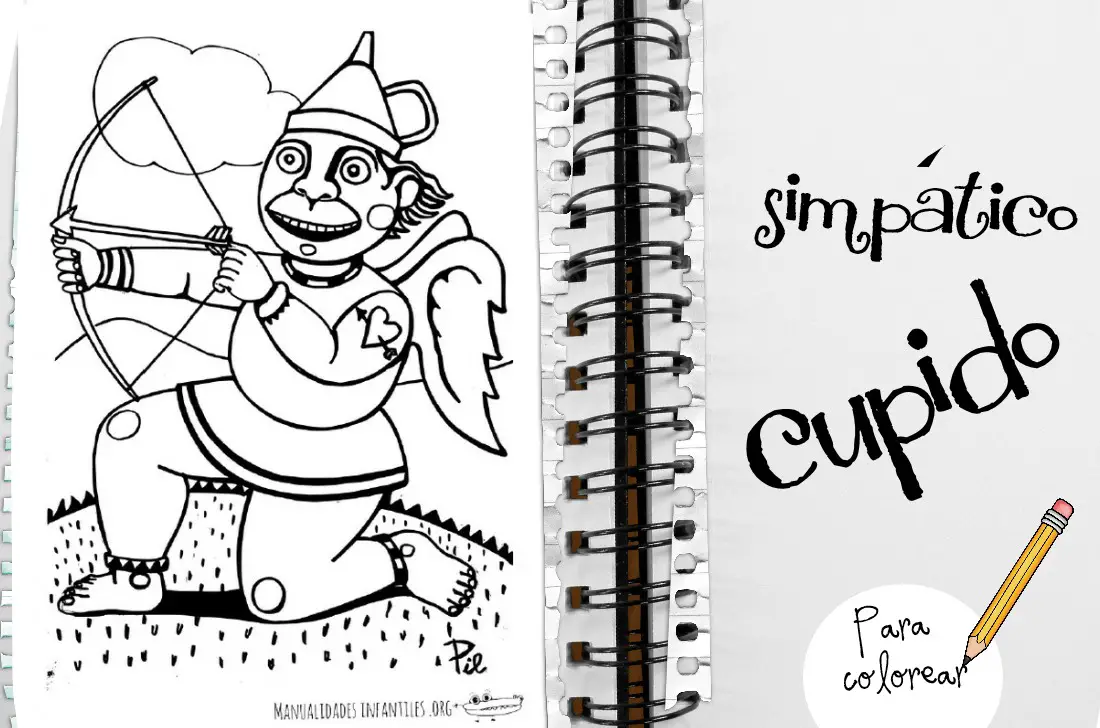 Pil
MANUALIDADES INFANTILES .ORG
simpático
cupido
Para
colorear